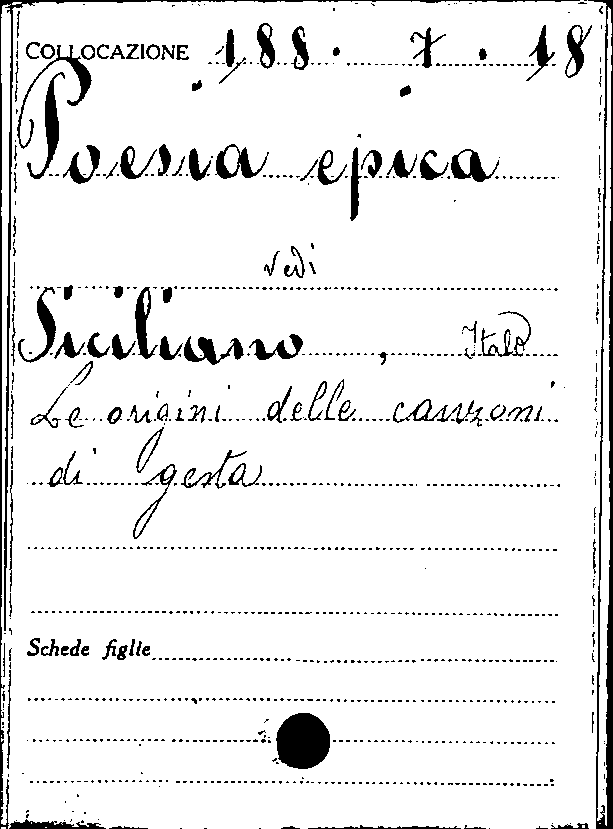 COLLOCAZIONE 188. 7. 18
Poesia epica
vedi
Siciliano, Italo
Le origini delle canzoni
di gesta
Schede figlie